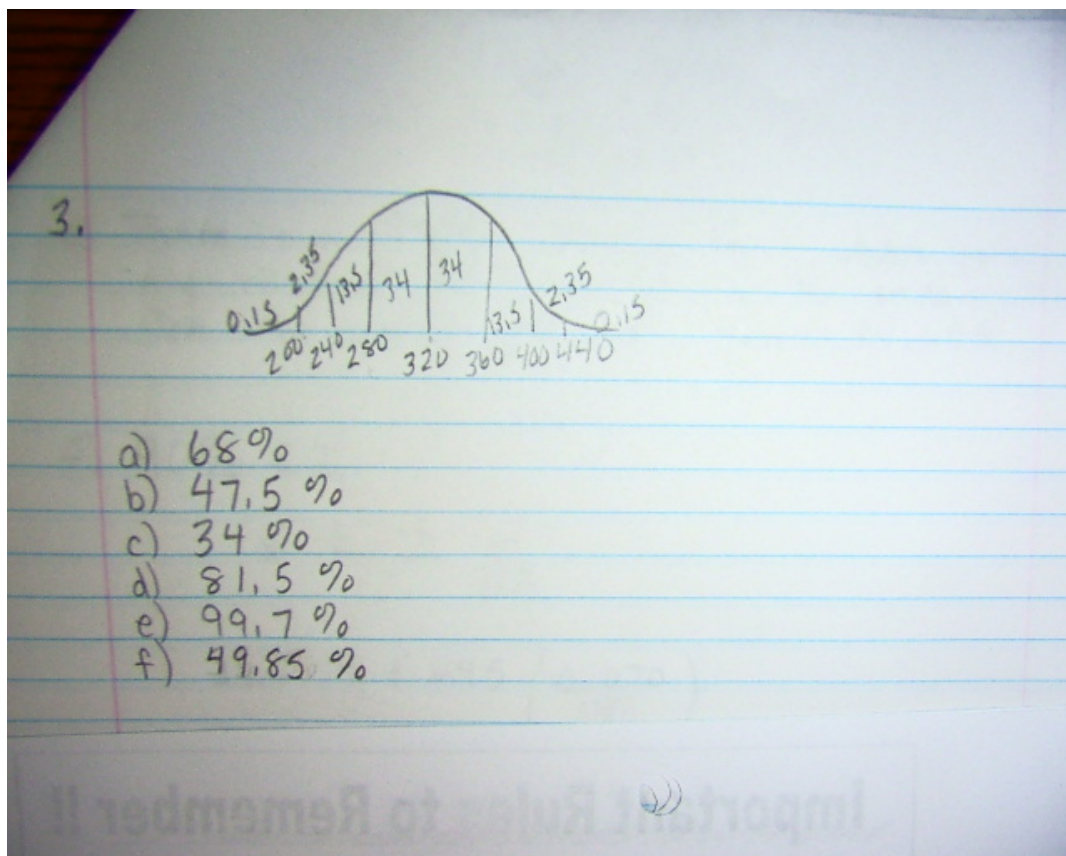 3.
2.35 2.35
0.15 13.5 34 34 13.5 0.15
200 240 280 320 360 400 440
a) 68%
b) 47.5 %
c) 34 %
d) 81.5 %
e) 99.7 %
f) 49.85 %
Important Rules to Remember !!